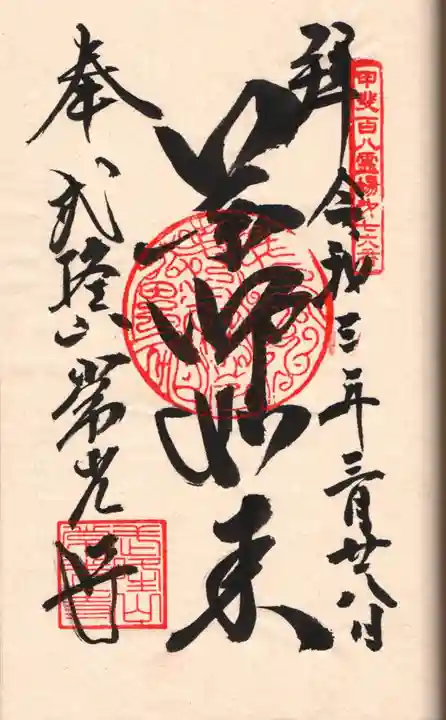 甲斐百八霊場第七十六番
拜 令和三年三月廿八日
薬師如来
奉 武隆山常光寺